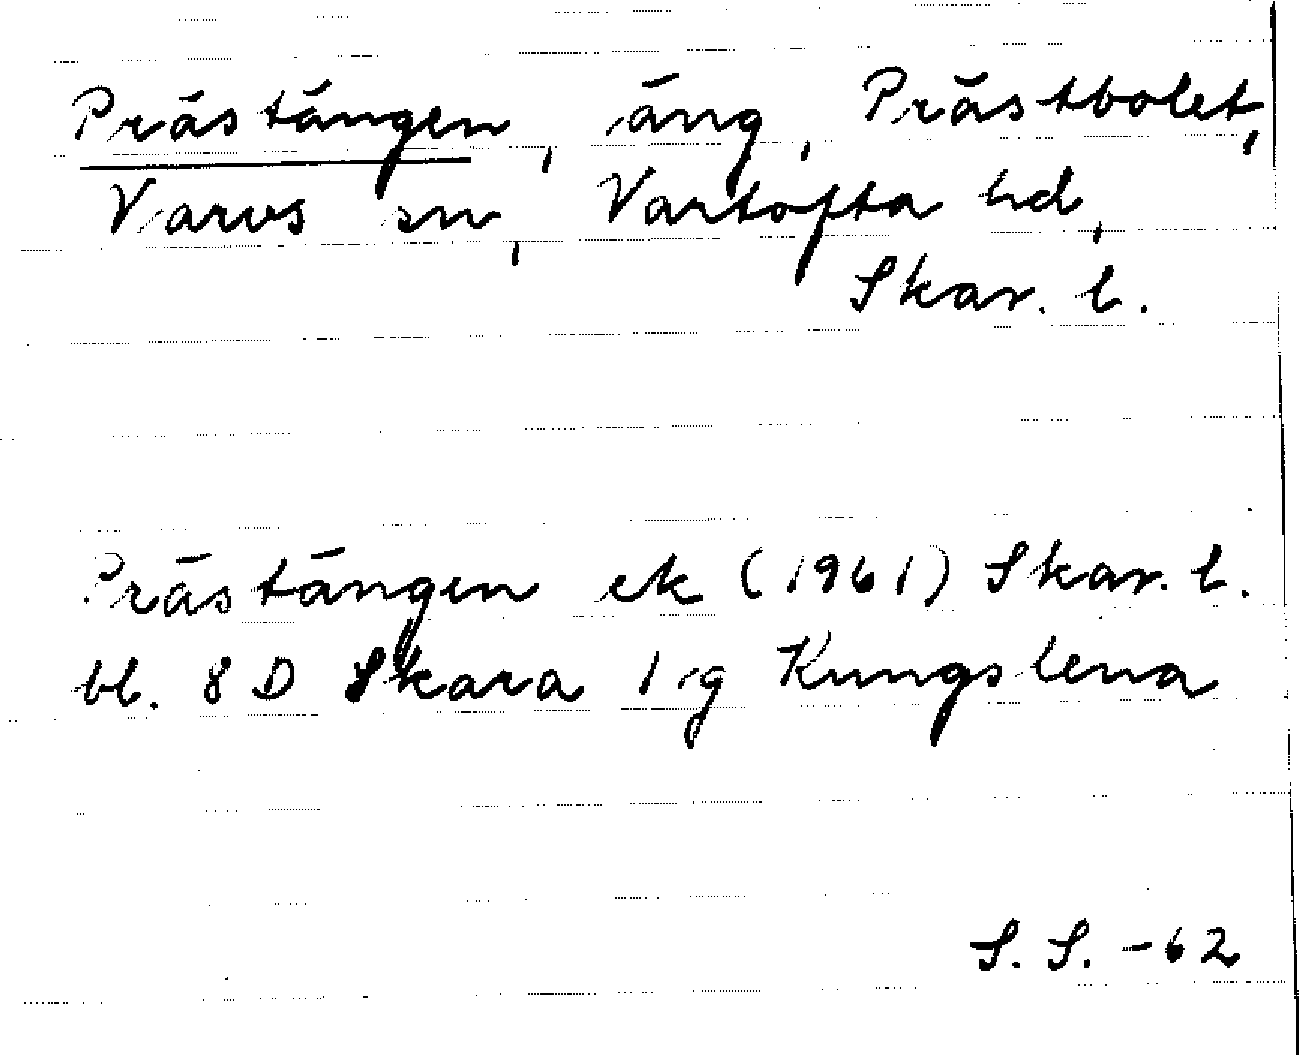 Prästängen, äng, Prästbolet,
Varvs sn, Vartofta hd,
Skar. l.
Prästängen ek (1961) Skar. l.
bl. 8 D Skara 1 g Kungslena
S. S. -62